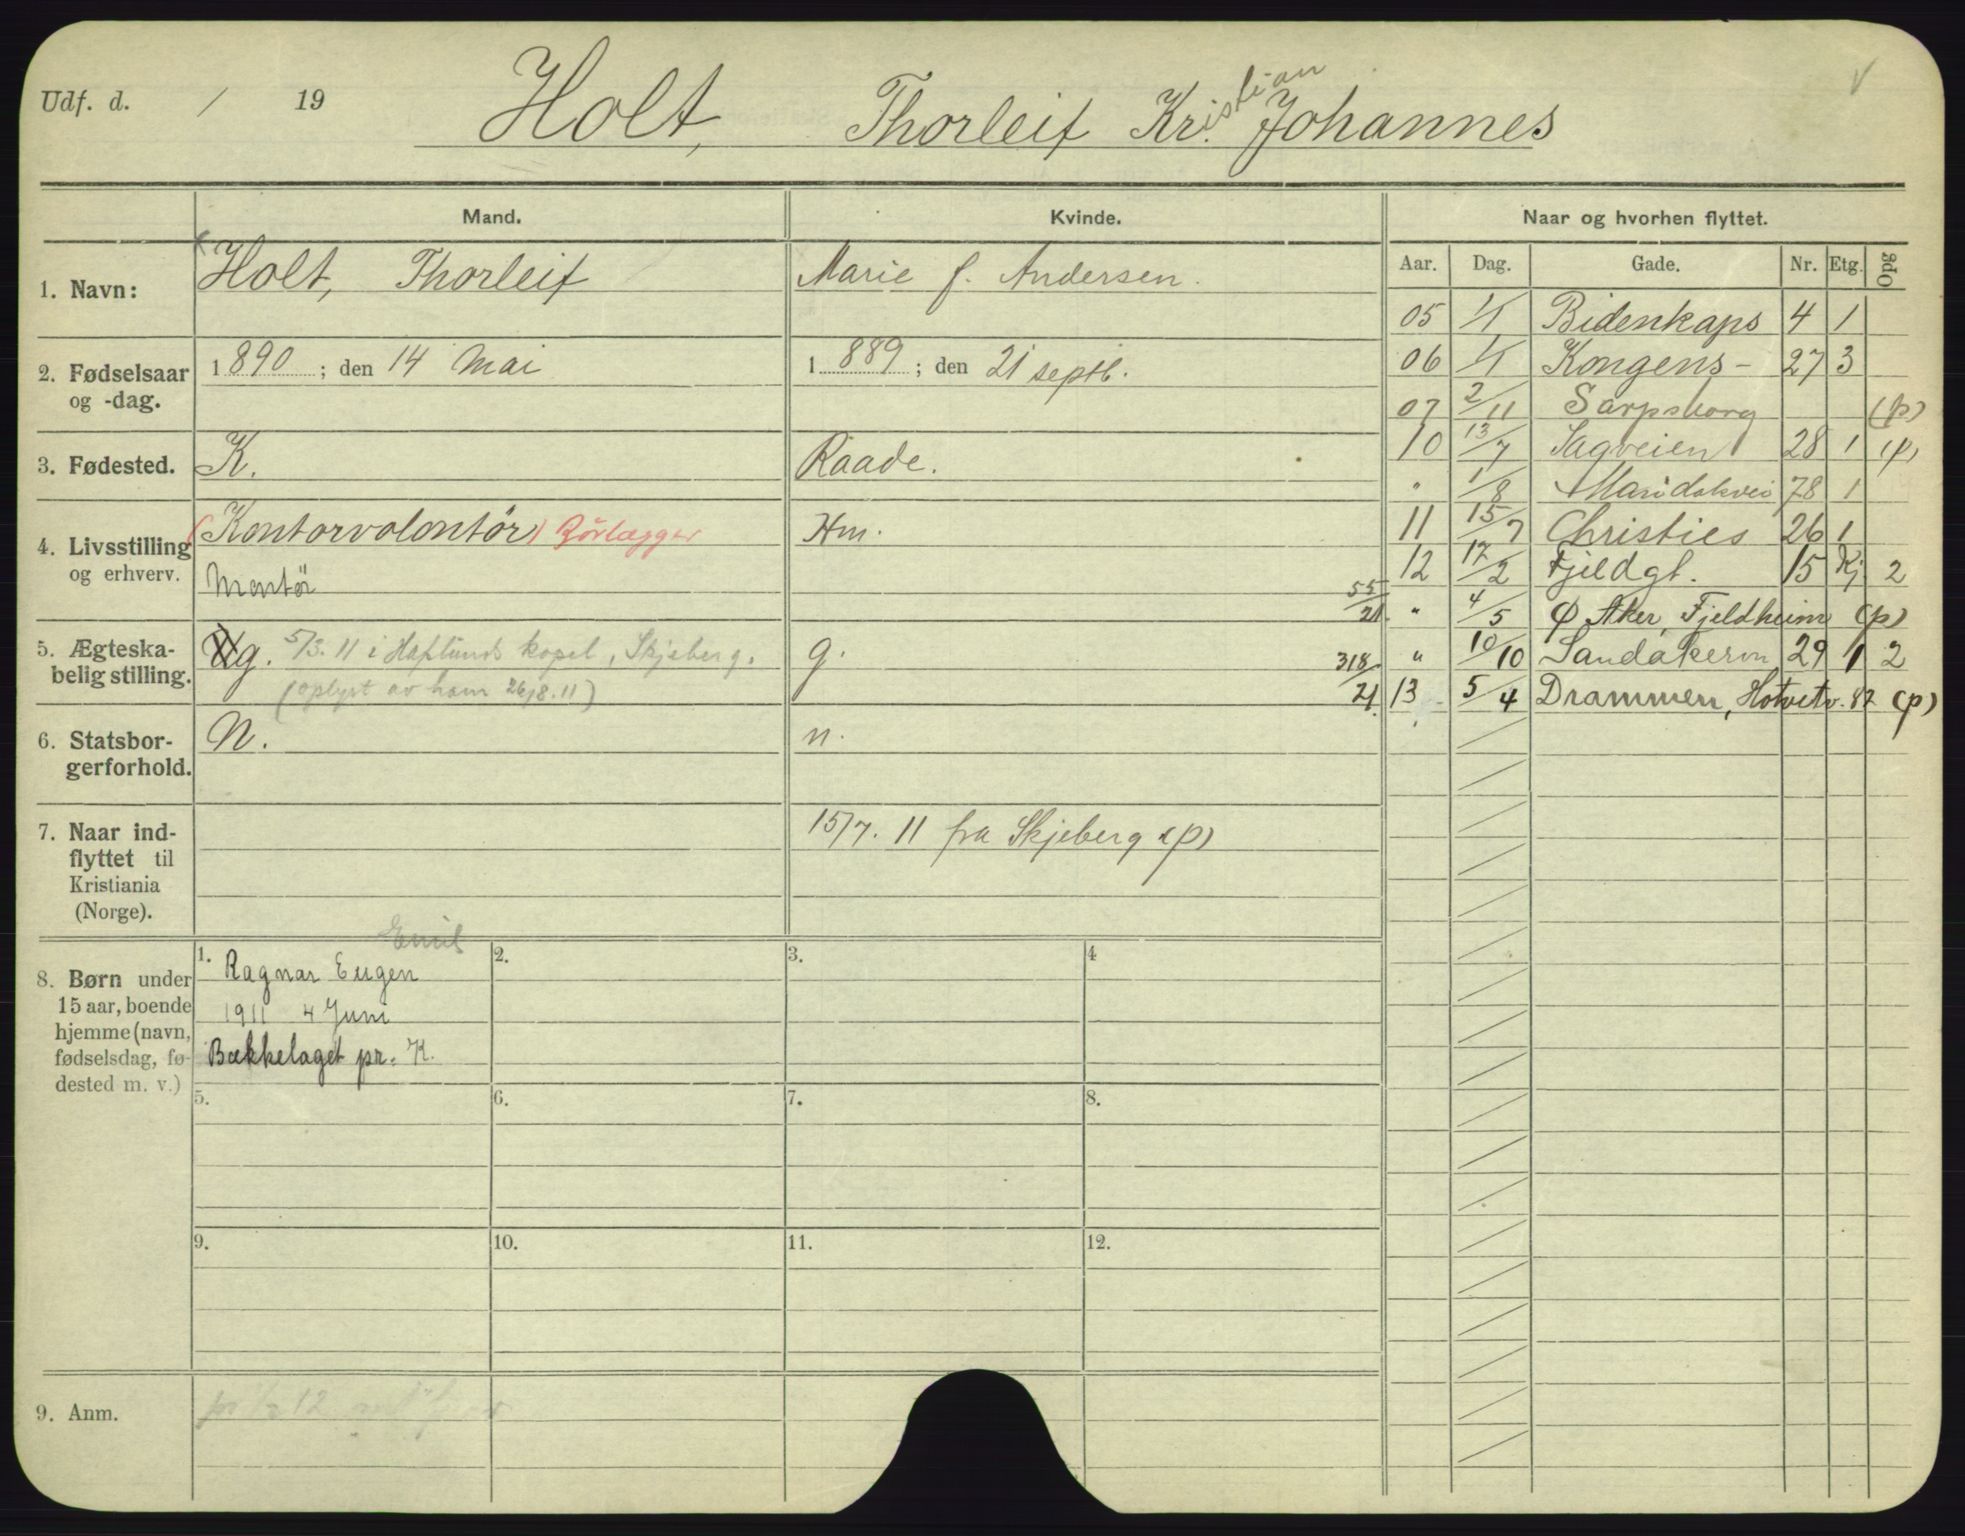 Udf. d. / 19
Holt, Thorleif Kr.istian Johannes
Mand. Kvinde. Naar og hvorhen flyttet.
Aar. Dag. Gade. Nr. Etg. Opg
1. Navn: Holt, Thorleif
Marie f. Andersen.
2. Fødselsaar og -dag. 1890; den 14 Mai
1889; den 21 septb.
3. Fødested. K.
Raade.
4. Livsstilling og erhverv. (Kontorvolontör) Rörlægger
Montör
Hm.
5. Ægteska-
belig stilling. Ug. 5/3.11 i Haflunds kapel, Skjeberg.
(oplyst av ham 26/8.11)
g.
6. Statsbor-
gerforhold. N.
n.
7. Naar ind-
flyttet til
Kristiania
(Norge).
15/7. 11 fra Skjeberg (p)
05 1/1 Bidenkaps 4 1
06 1/1 Kongens- 27 3
07 2/11 Sarpsborg (p)
10 13/7 Sagveien 28 1 (p)
" 1/8 Maridalsvei 78 1
11 15/7 Christies 26 1
12 17/2 Fjeldgt. 15 Kj 2
55/21. " 4/5 Aker, Fjeldheim (p)
318/21. " 10/10 Sandakervn 29 1 2
13 5/4 Drammen, Hotvetv. 87 (p)
8. Børn under
15 aar, boende
hjemme (navn,
fødselsdag, fø-
dested m. v.)
1. Emil
Ragnar Eugen
1911 4 Juni
Bækkelaget pr. K.
2.
3.
4
5.
6.
7.
8.
9.
10.
11.
12.
9. Anm.